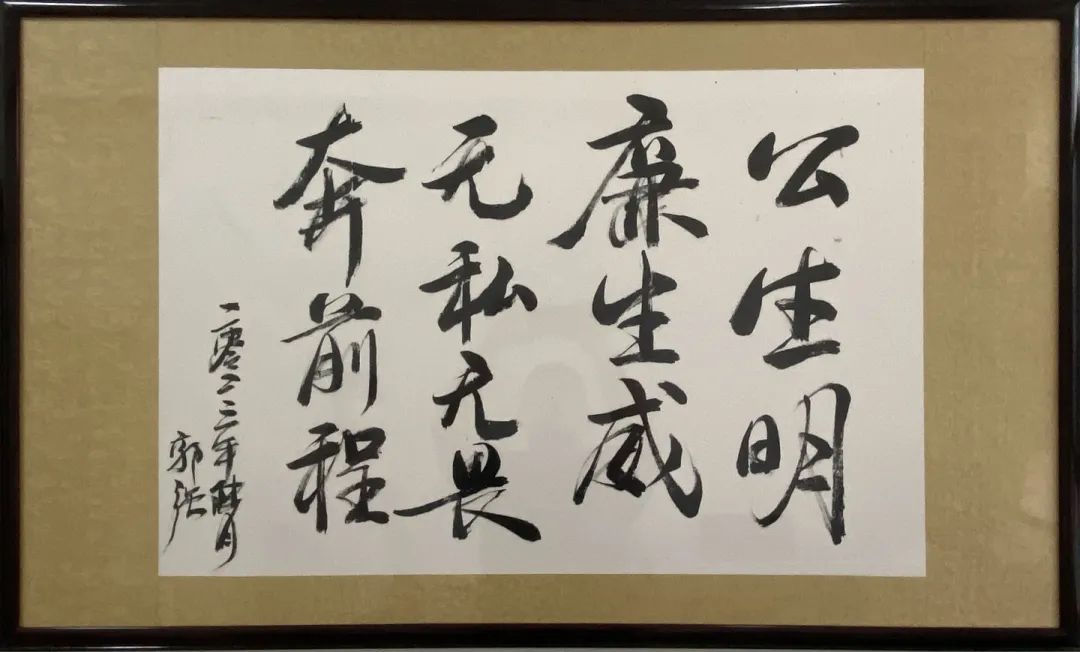 公生明
廉生威
无私无畏
奔前程
二零二二年
郭